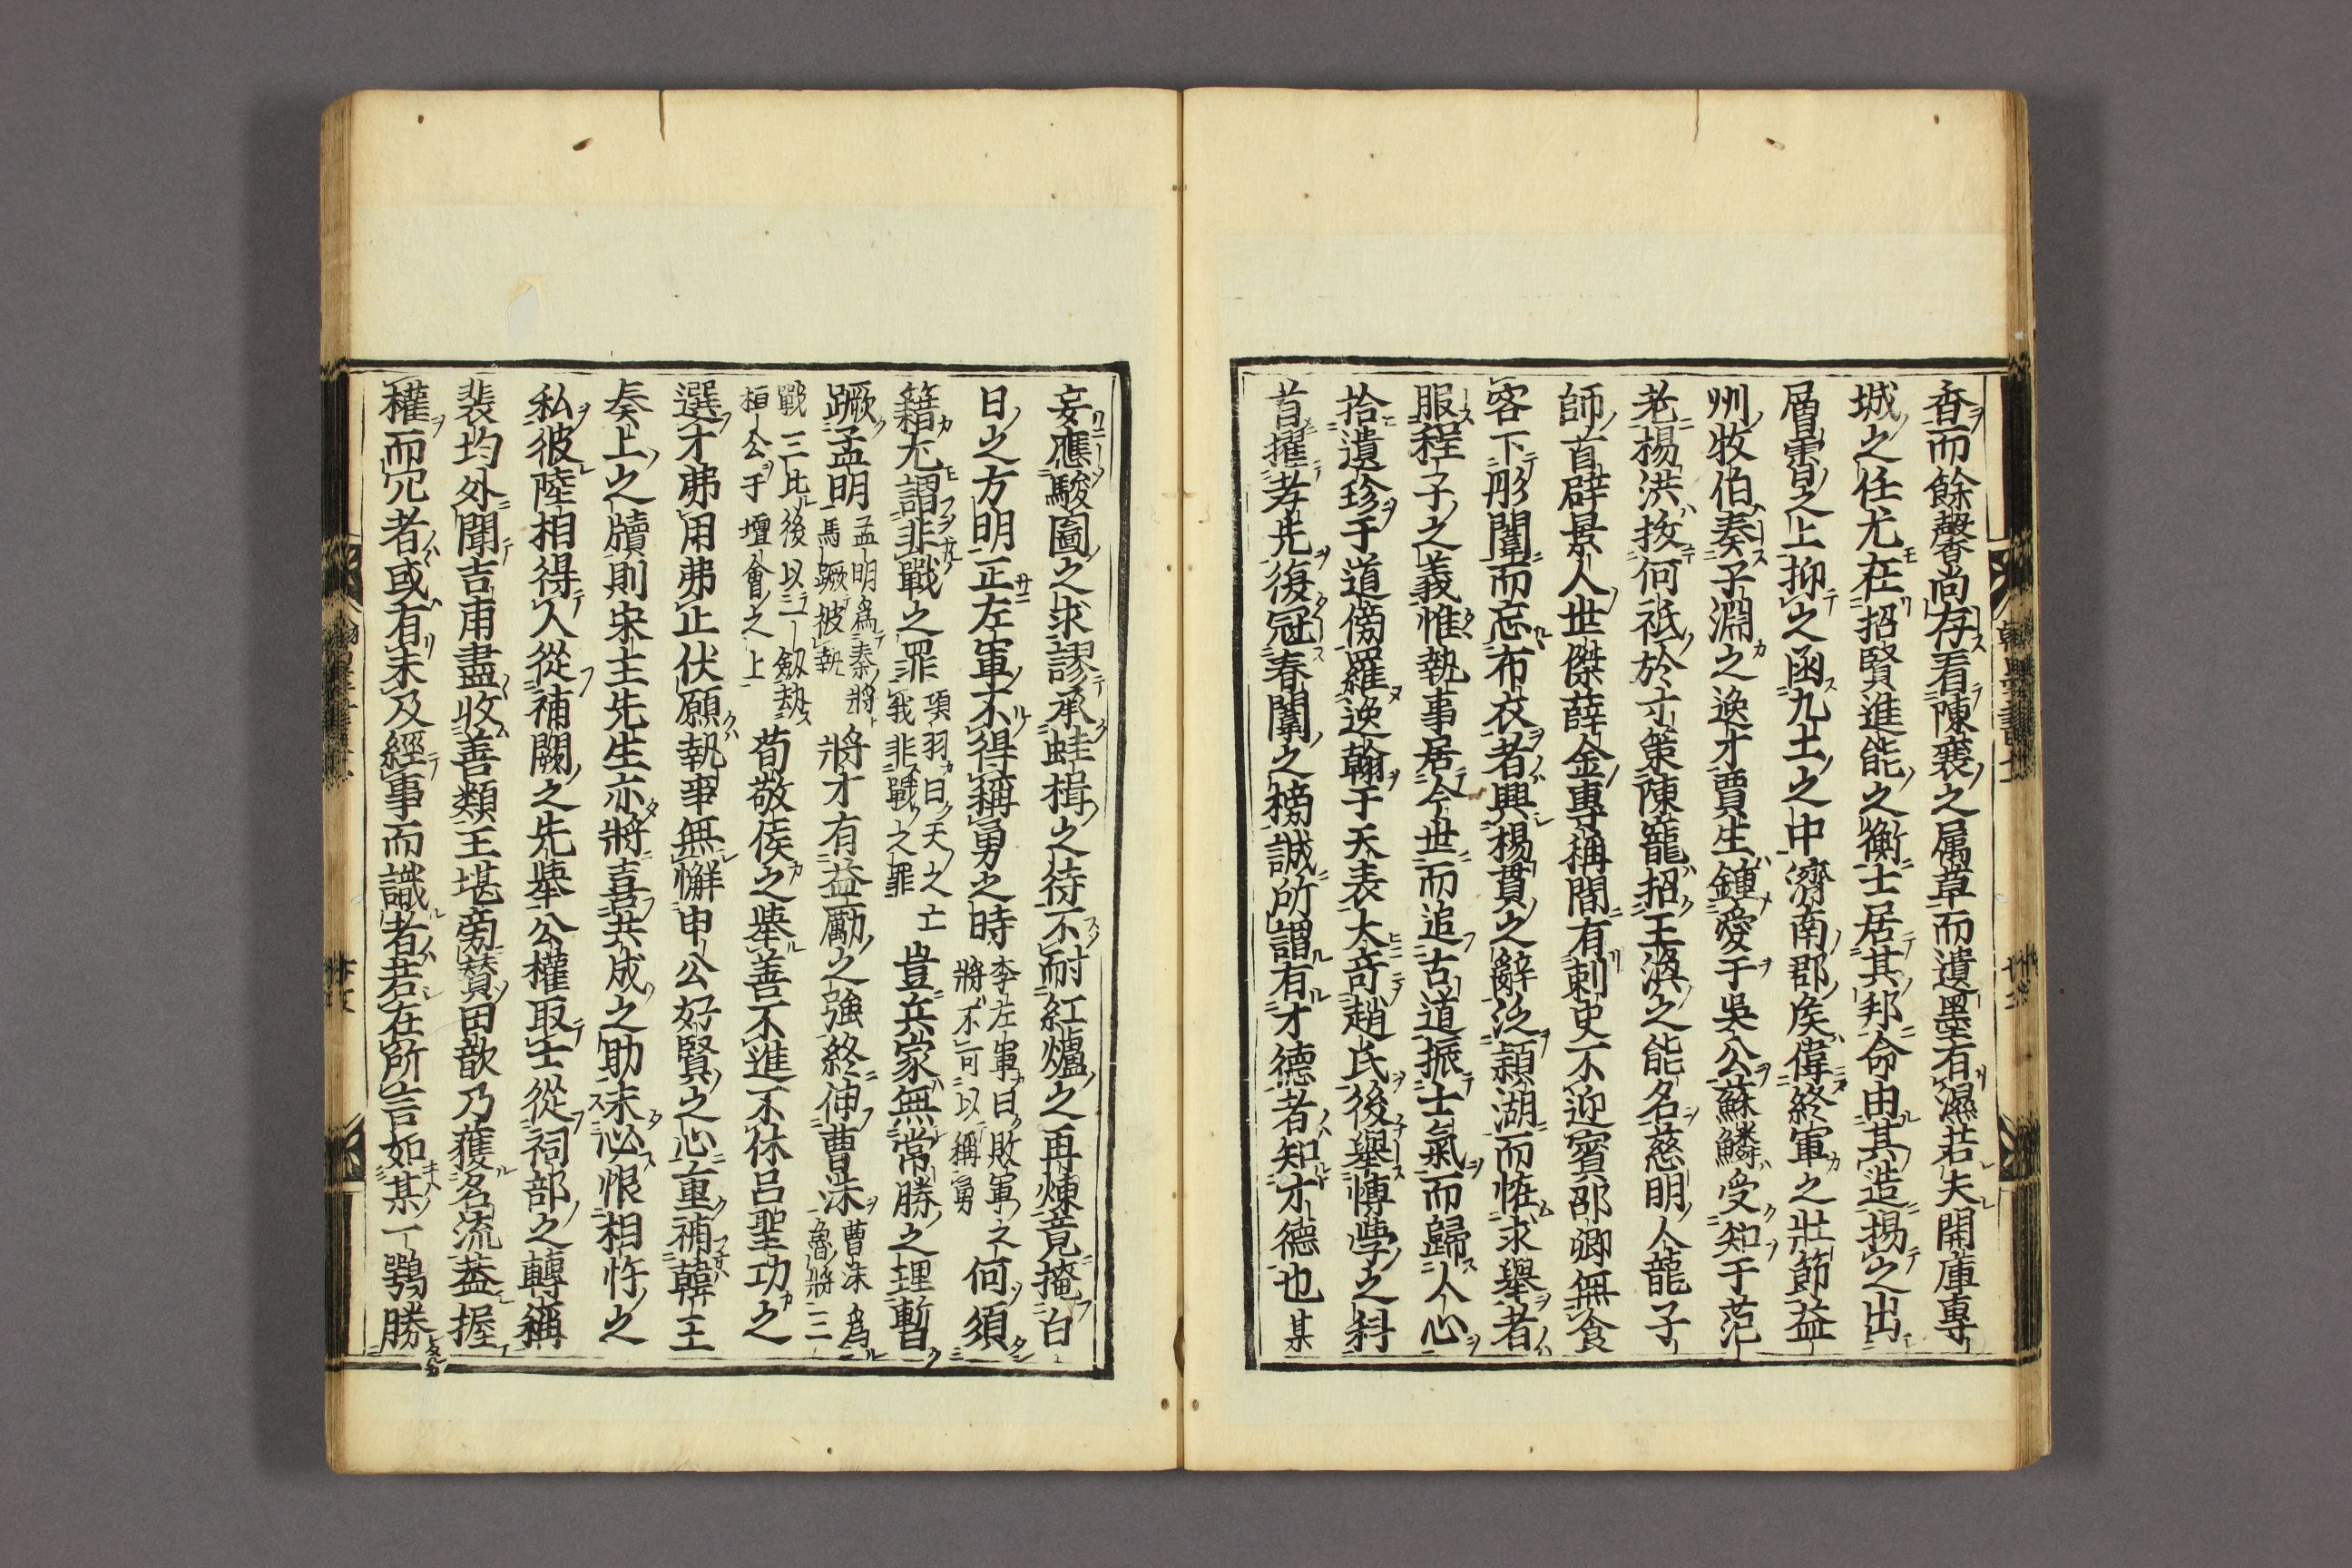 香而餘馨尚存看陳襄之属草而遺墨有濕若夫開庫專
城之任尤在招賢進能之衡士居其邦命由其造揚之出
層霄之上抑之函九土之中濟南郡矦偉終軍之壯節益
州牧伯奏子淵之逸才賈生鍾愛于吳公蘇鱗受知于范
老楊洪抜何祇於寸策陳寵招王渙之能名慈明人龍子
師首辟景人世傑薛金專稱間有刺史不迎賓邵卿無食
客下彤闈而忘布衣者興楊貫之辭泛潁湖而恠求舉者
服程子之義惟執事居今世而追古道振士氣而歸人心
拾遺珍于道傍羅逸翰于天表大奇趙氏後舉博學之科
首擢孝先復冠春闈之榜誠所謂有才德者知才德也某
妄應駿圖之求謬承蛙楫之待不耐紅爐之再煉竟掩白
日之方明正左軍不得稱勇之時李左軍曰敗軍之將不可以稱勇何須
籍尤謂非戰之罪項羽曰天之亡我非戰之罪豈兵家無常勝之理暫
蹶孟明孟明爲秦將一馬蹶被執將才有益勵之強終伸曹沬曹沬爲魯將三
戰三比後以一劔劫桓公于壇會之上荀敬侯之舉善不進不休呂聖功之
選才弗用弗止伏願執事無懈申公好賢之心重補韓王
奏上之牘則宋主先生亦將喜共成之助未必恨相忤之
私彼陸相得人從補闕之先舉公權取士從祠部之轉稱
裴均外聞吉甫盡收善類王堪旁賛田歆乃獲名流葢握
權而冗者或有未及經事而識者若在所言如某一鶚勝